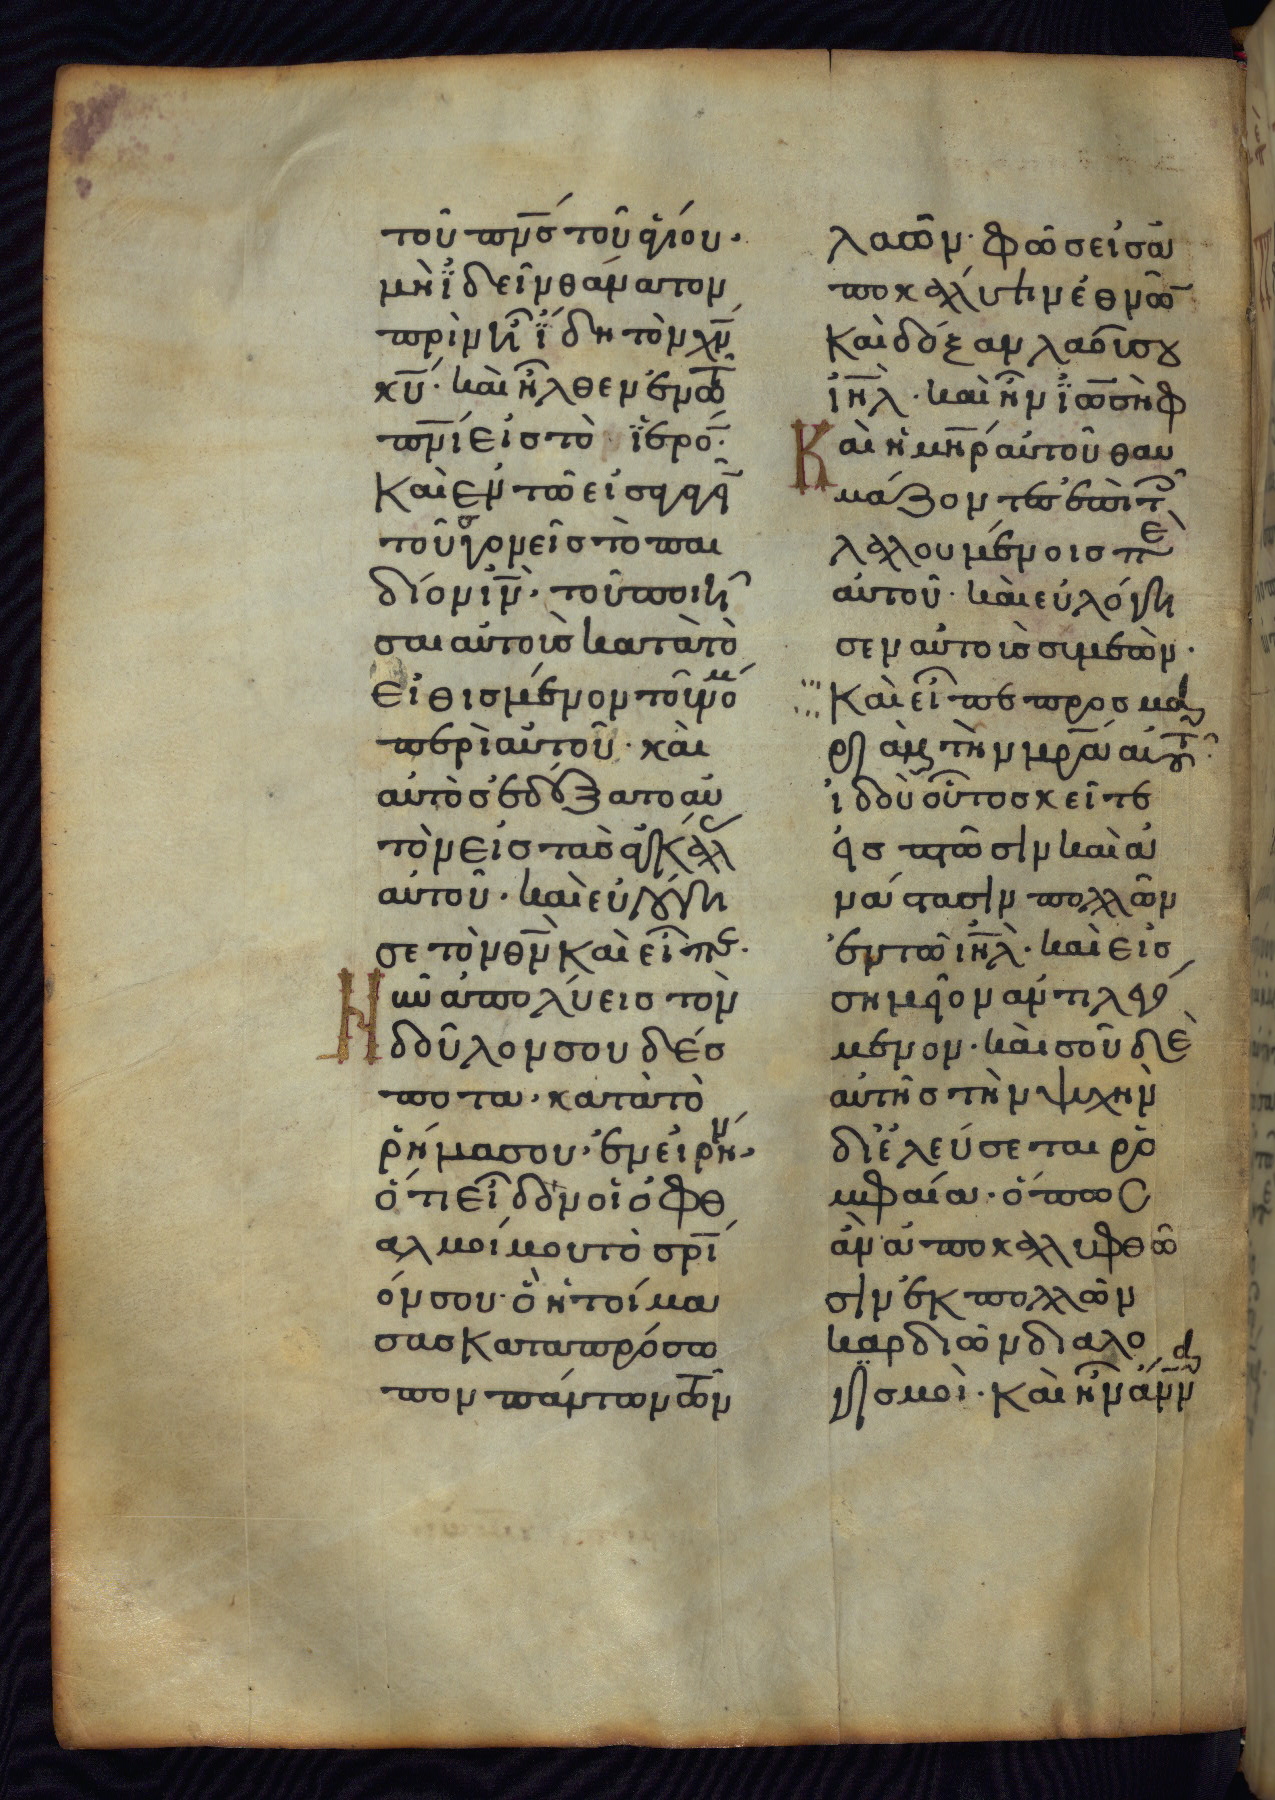 τοῦ πν̅σ τοῦ ἁγίου·
μὴ ἰδεῖν θάνατον
πρὶν ἢ ἴδη τὸν χν̅
κυ̅· καὶ ἦλθεν ἐν τῶ
πνι̅ εἰς τὸ ἱερόν·
Καὶ ἐν τῶ εἰσαγαγεῖ
τοὺς γονεῖς τὸ παι
δίον ιν̅· τοῦ ποιῆ
σαι αὐτοὺς κατὰ τὸ
εἰθισμένον τοῦ νόμου
περὶ αὐτοῦ· καὶ
αὐτὸς ἐδέξατο αὐ
τὸν εἰς τὰς ἀγκάλας
αὐτοῦ· καὶ εὐλόγη
σε τὸν θν̅ καὶ εἶπε·
Νῦν ἀπολύεις τὸν
δοῦλον σου δέσ
ποτα· κατὰ τὸ
ῥῆμα σου· ἐν εἰρήνη·
ὅτι εἶδον οἱ ὀφθ
αλμοί μου τὸ σρι̅
όν σου· ὃ ἡτοίμα
σας κατα πρόσω
πον πάντων τῶν
λαῶν· φῶς εἰς ἀ
ποκάλυψιν ἐθνῶ
Καὶ δόξαν λαοῦ σου
ιη̅λ· καὶ ἦν ἰωσὴφ
Καὶ ἡ μη̅ρ αὐτοῦ θαυ
μάζοντες ἐπὶ τοῖς
λαλουμένοις περὶ
αὐτοῦ· καὶ εὐλόγη
σεν αὐτοὺς συμεών·
Καὶ εἶπε προς μα
ριὰμ τὴν μρ̅α αὐτοῦ·
ἰδοὺ οὗτος κεῖτε
εἰς πτῶσιν καὶ ἀ
νάστασιν πολλῶν
ἐν τῶ ιη̅λ· καὶ εἰς
σημεῖον ἀντιλεγό
μενον· καὶ σοῦ δὲ
αὐτῆς τὴν ψυχὴν
διελεύσεται ῥο
μφαία· ὅπως
ἂν ἀποκαλυφθῶ
σιν ἐκ πολλῶν
καρδιῶν διαλο
γισμοὶ· Καὶ ἦν ἄννα